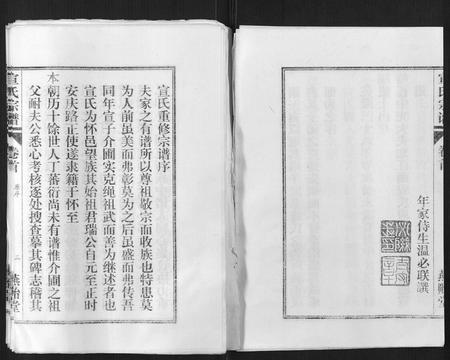 年家侍生温必联撰
宣氏宗譜
卷首
宣氏重修宗譜序
夫家之有譜所以尊祖敬宗而收族也特患莫
为人前虽美而弗彰莫为之后虽盛而弗传吾
同年宣子介圃实克绳祖武而善为继述者也
宣氏为怀邑望族其始祖君瑞公自元至正时
安庆路正使遂隶籍于怀至
本朝历十余世人丁蕃衍尚未有谱惟介圃之祖
父耐夫公悉心考核逐处搜查摹其碑志稽其
宣氏宗譜
卷首
序
二
燕诒堂